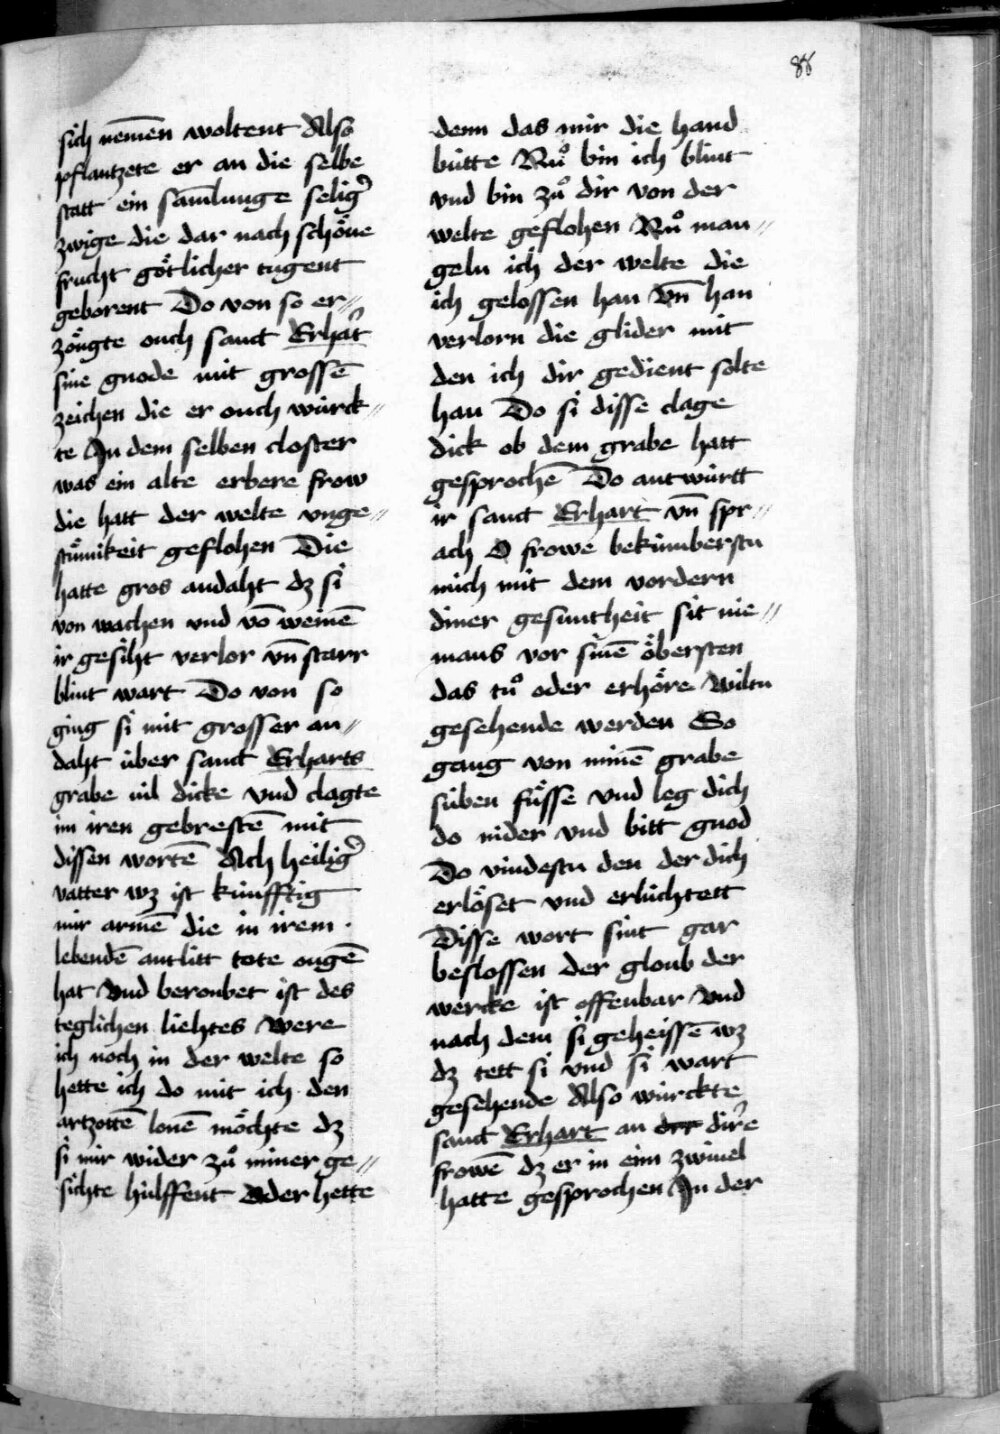 88
sich nemen̄ woltent Also
pflantzete er an die selbe
statt ein sam̄lunge selig̉
zwige die dar nach schöne
frucht götlicher tugent
geborent Do von so er⸗
zöugte ouch sanct Erhar̉t
sine gnode mit grossē
zeichen die er ouch würck⸗
te In dem selben closter
was ein alte erbere frow
die hatt der welte vnge⸗
stümikeit geflohen Die
hatte gros andaht dz si
von wachen vnd vō weinē
ir gesiht verlor vn̄ starr
blint wart Do von so
ging si mit grosser an⸗
daht über sanct Erharts
grabe vil dicke vnd clagte
im iren gebrestē mit
dissen wortē Ach heilig̉
vatter wz ist künfftig
mir armē die in irem
lebendē antlitt tote ougē
hat vnd beroubet ist des
teglichen liehtes Were
ich noch in der welte so
hette ich do mit ich den
artzottē lonē möchte dz
si mir wider zuͦ miner ge⸗
sichte hülffent Oder hette
denn das mir die hand
bütte Nuͦ bin ich blint
vnd bin zuͦ dir von der
welte geflohen Nuͦ man⸗
geln ich der welte die
ich gelossen han vn̄ han
verlorn die glider mit
den ich dir gedient solte
han Do si disse clage
dick ob dem grabe hatt
gesprochē Do antwürtt
ir sanct Erhart vn̄ spr⸗
ach O frowe bekümberstu
mich mit dem vordern
diner gesuntheit sit nie⸗
mans vor sinē öbersten
das tuͦ oder erhöre Wiltu
gesehende werden So
gang von minē grabe
süben füsse vnd leg dich
do nider vnd bitt gnod
Do vindestu den der dich
erlöset vnd erlüchtett
Disse wort sint gar
beslossen der gloub der
wercke ist offenbar Vnd
nach dem si geheissē wz
dz tett si vnd si wart
gesehende Also würckte
sanct Erhart an der dir̉e
frowē dz er in eim zwiuel
hatte gesprochen In der